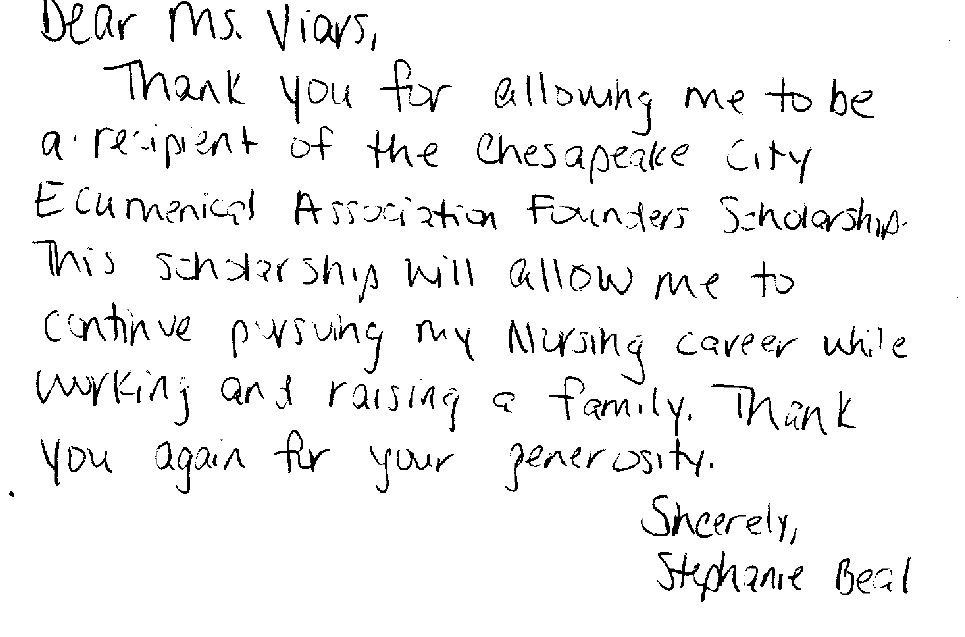 Dear Ms. Viars,
Thank you for allowing me to be
a recipient of the Chesapeake City
Ecumenical Association Founders Scholarship.
This scholarship will allow me to
continue pursuing my Nursing career while
working and raising a family. Thank
you again for your generosity.
Sincerely,
Stephanie Beal